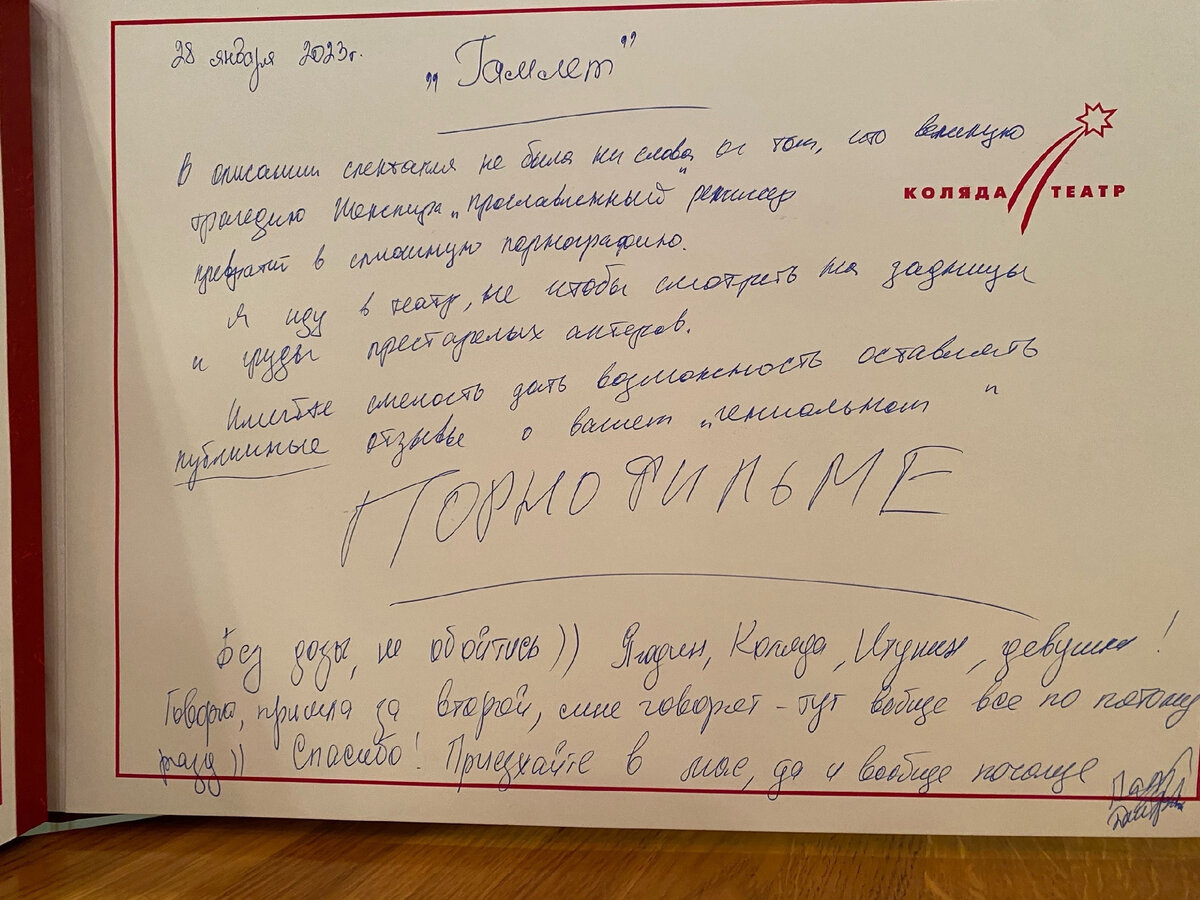 28 января 2023г.
„Гамлет”
КОЛЯДА ТЕАТР
В описании спектакля не было ни слова о том, что великую
трагедию Шекспира „прославленный" режиссер
превратит в сплошную порнографию.
Я иду в театр, не чтобы смотреть на задницы
и груды престарелых актеров.
Имейте смелость дать возможность оставлять
публичные отзывы о вашем „гениальном "
ПОРНОФИЛЬМЕ
Без дозы, не обойтись)) Ягодин, Коляда, Итунин, девушки!
Говорю, пришла за второй, мне говорят - тут вообще все по пятому
разу)) Спасибо! Приезжайте в мае, да и вообще почаще